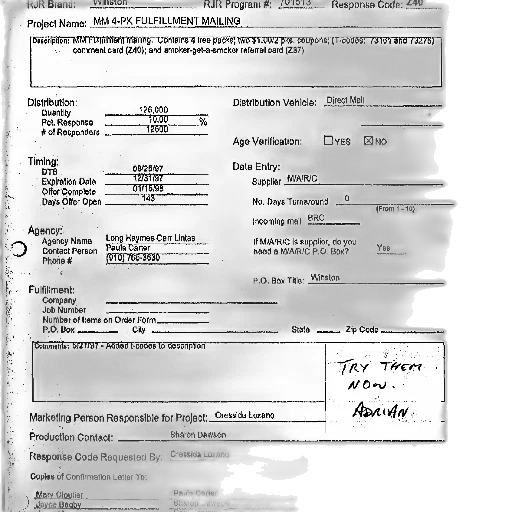 RJR Brand: Winston RJR Program #: 701513 Response Code: Z40
Project Name: MM 4-PK FULFILLMENT MAILING
Description: MM Fulfillment mailing. Contains 4 free packs; two $1.00/2 pks. coupons; (T-codes: 73169 and 73276)
comment card (Z40); and smoker-get-a-smoker referral card (Z37)
Distribution: Distribution Vehicle: Direct Mail
Quantity 126,000
Pct. Response 10.00 %
# of Responders 12600
Age Verification: YES NO
Timing: Data Entry:
DTS 08/26/97
Supplier M/A/R/C
Expiration Date 12/31/97
Offer Complete 01/15/98
Days Offer Open 143
No. Days Turnaround 0
(From 1-10)
Incoming mail BRC
Agency:
Agency Name Long Haymes Carr Lintas
Contact Person Paula Carter
Phone # (910) 765-3630
If M/A/R/C is supplier, do you
need a M/A/R/C P.O. Box? Yes
P.O. Box Title: Winston
Fulfillment:
Company
Job Number
Number of Items on Order Form
P.O. Box City State Zip Code
Comments: 5/27/97 - Added t-codes to description
TRY THEM
NOW.
ADRIAN
Marketing Person Responsible for Project: Cressida Lozano
Production Contact: Sharon Dawson
Response Code Requested By: Cressida Lozano
Copies of Confirmation Letter To:
Mary Cloutier Paula Carter
Jayne Bagby Sharon Dawson